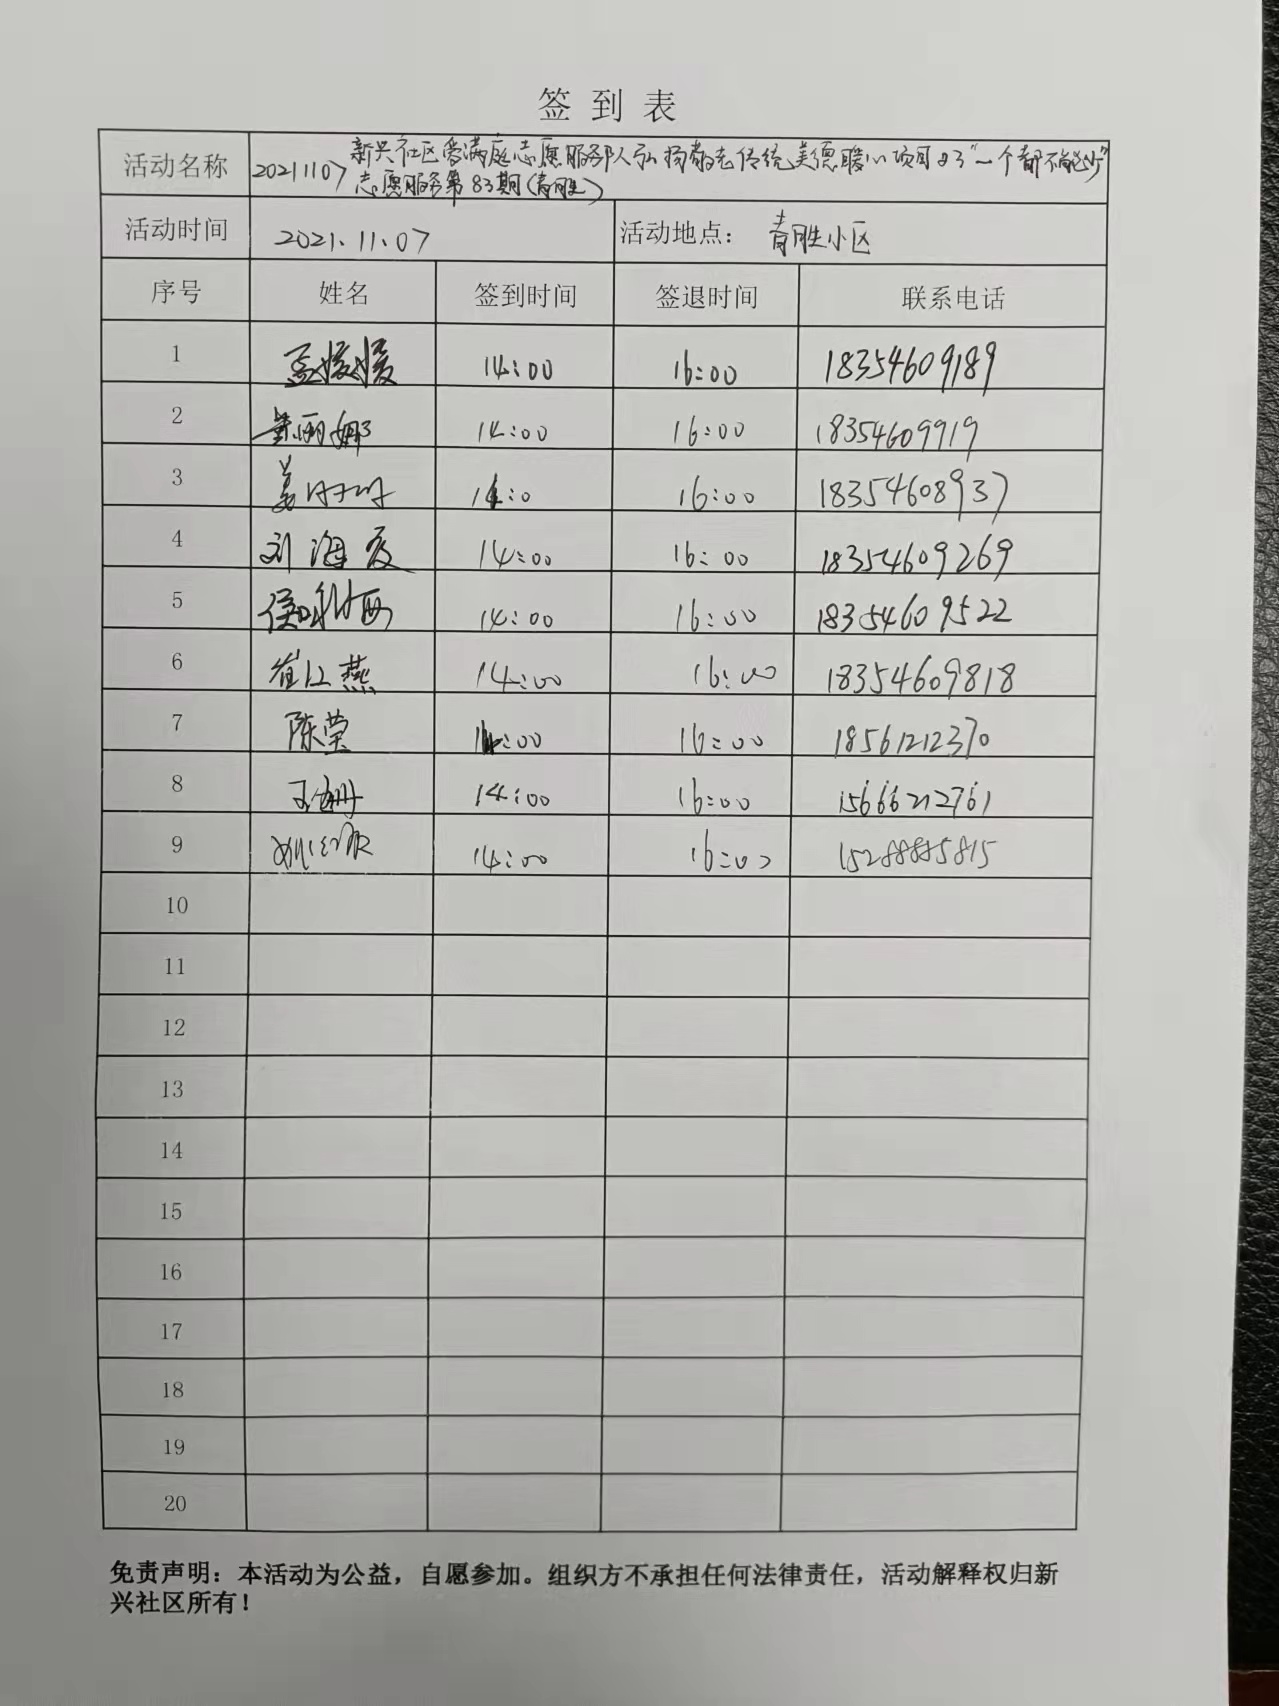 签到表
活动名称 20211107 新兴社区爱满庭志愿服务队弘扬敬老传统美德暖心项目之"一个都不能少"
志愿服务第83期(青胜)
活动时间 2021.11.07 活动地点： 青胜小区
序号 姓名 签到时间 签退时间 联系电话
1 孟媛媛 14:00 16:00 18354609189
2 丽娜 14:00 16:00 18354609919
3 姜 14:0 16:00 18354608937
4 刘海 14:00 16:00 18354609269
5 侯 14:00 16:00 18354609522
6 崔江燕 14:00 16:00 18354609818
7 陈莹 14:00 16:00 18561212370
8 王 14:00 16:00 15666212761
9 姚 14:00 16:00 15288885815
10
11
12
13
14
15
16
17
18
19
20
免责声明：本活动为公益，自愿参加。组织方不承担任何法律责任，活动解释权归新
兴社区所有！